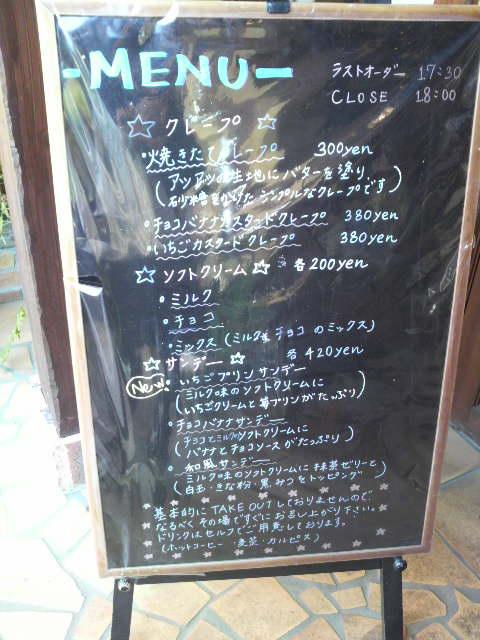 -MENU-
ラストオーダー 17:30
CLOSE 18:00
☆ クレープ ☆
・焼きたてクレープ 300yen
(アツアツの生地にバターを塗り
砂糖をかけた シンプルなクレープです)
・チョコバナナカスタードクレープ 380yen
・いちごカスタードクレープ 380yen
☆ ソフトクリーム ☆ 各200yen
・ミルク
・チョコ
・ミックス (ミルクとチョコ のミックス)
☆サンデー ☆ 各 420yen
New! ・いちごプリンサンデー
(ミルク味のソフトクリームに
いちごクリームと苺プリンがたっぷり)
・チョコバナナサンデー
(チョコとミルクのソフトクリームに
バナナとチョコソースがたっぷり)
・和風サンデー
(ミルク味のソフトクリームに 抹茶ゼリーと
白玉・きな粉・黒みつをトッピング)
基本的に TAKE OUT しておりませんので
なるべく その場ですぐにお召し上がり下さい。
ドリンクはセルフでご用意しております。
(ホットコーヒー・麦茶・カルピス)